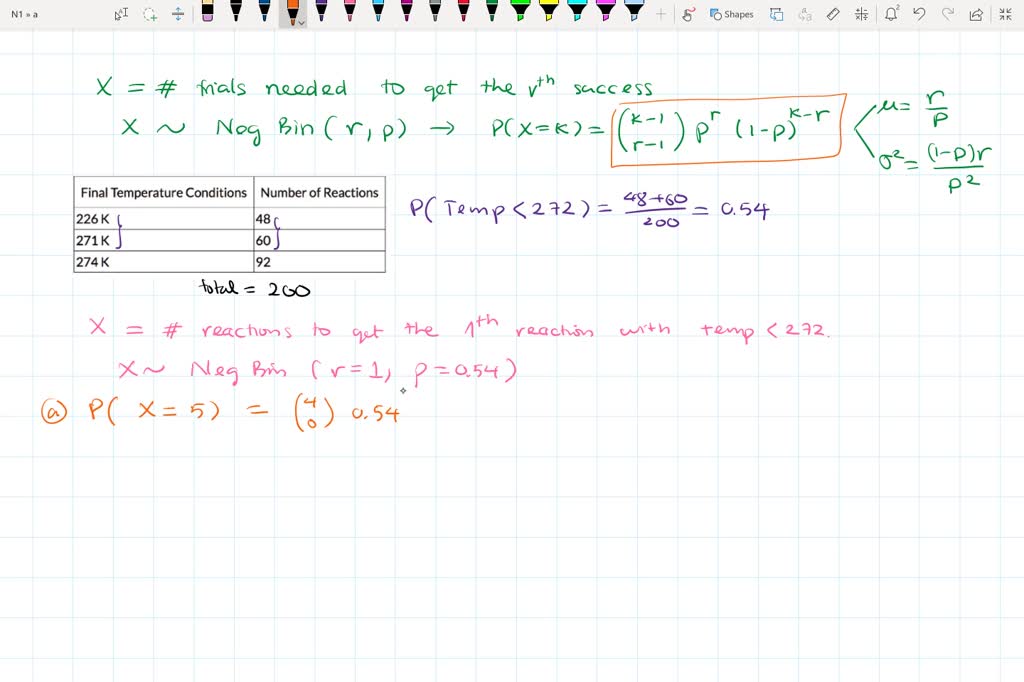 N1 » a
Shapes
X = # trials needed to get the rth success
X ~ Neg Bin (r, p) → P(X=K) = (K-1 r-1) p^r (1-p)^K-r
μ = r/p
σ² = (1-p)r/p²
Final Temperature Conditions Number of Reactions
226 K 48
271 K 60
274 K 92
total = 200
P(Temp < 272) = 48+60/200 = 0.54
X = # reactions to get the 1th reaction with temp < 272.
X ~ Neg Bin (r = 1, p = 0.54)
(a) P( X = 5) = (4 0) 0.54